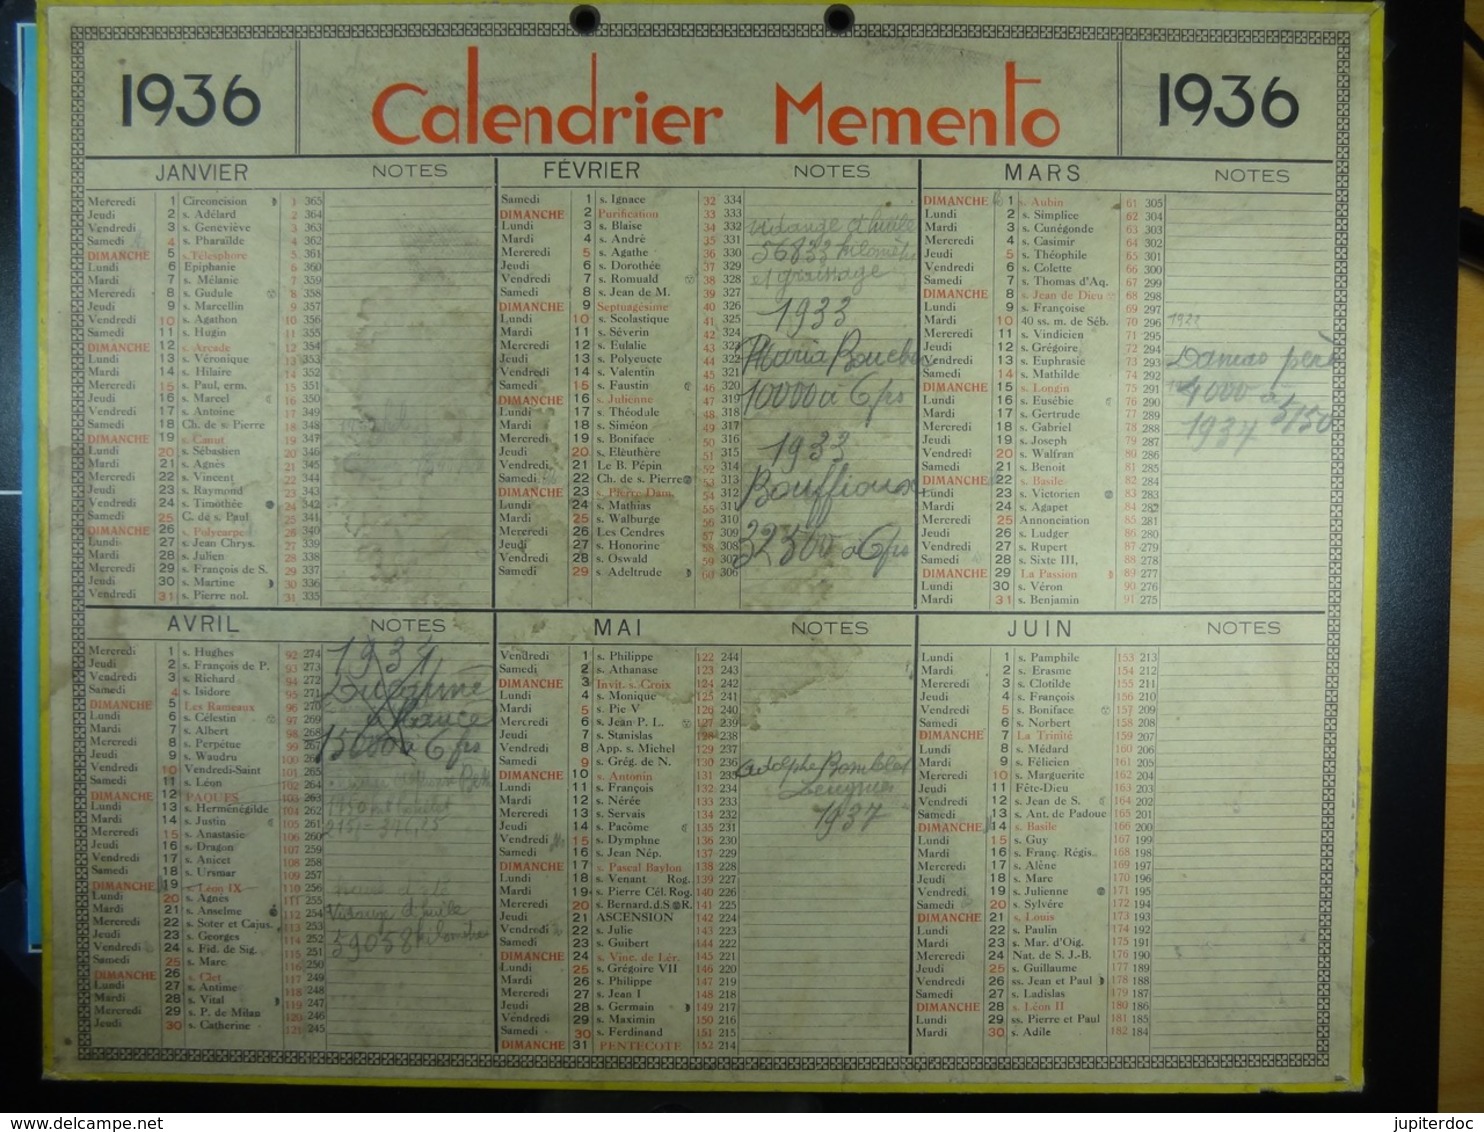 1936
Calendrier Memento
1936
JANVIER NOTES
Mercredi 1 Circoncision 1 365
Jeudi 2 s. Adélard 2 364
Vendredi 3 s. Geneviève 3 363
Samedi 4 s. Pharaïlde 4 362
DIMANCHE 5 s. Télesphore 5 361
Lundi 6 Epiphanie 6 360
Mardi 7 s. Mélanie 7 359
Mercredi 8 s. Gudule 8 358
Jeudi 9 s. Marcellin 9 357
Vendredi 10 s. Agathon 10 356
Samedi 11 s. Hugin 11 355
DIMANCHE 12 s. Arcade 12 354
Lundi 13 s. Véronique 13 353
Mardi 14 s. Hilaire 14 352
Mercredi 15 s. Paul, erm. 15 351
Jeudi 16 s. Marcel 16 350
Vendredi 17 s. Antoine 17 349
Samedi 18 Ch. de s. Pierre 18 348
DIMANCHE 19 s. Canut 19 347
Lundi 20 s. Sébastien 20 346
Mardi 21 s. Agnès 21 345
Mercredi 22 s. Vincent 22 344
Jeudi 23 s. Raymond 23 343
Vendredi 24 s. Timothée 24 342
Samedi 25 C. de s. Paul 25 341
DIMANCHE 26 s. Polycarpe 26 340
Lundi 27 s. Jean Chrys. 27 339
Mardi 28 s. Julien 28 338
Mercredi 29 s. François de S. 29 337
Jeudi 30 s. Martine 30 336
Vendredi 31 s. Pierre nol. 31 335
FÉVRIER NOTES
Samedi 1 s. Ignace 32 334
DIMANCHE 2 Purification 33 333
Lundi 3 s. Blaise 34 332
Mardi 4 s. André 35 331
Mercredi 5 s. Agathe 36 330
Jeudi 6 s. Dorothée 37 329
Vendredi 7 s. Romuald 38 328
Samedi 8 s. Jean de M. 39 327
DIMANCHE 9 Septuagésime 40 326
Lundi 10 s. Scolastique 41 325
Mardi 11 s. Séverin 42 324
Mercredi 12 s. Eulalie 43 323
Jeudi 13 s. Polyeucte 44 322
Vendredi 14 s. Valentin 45 321
Samedi 15 s. Faustin 46 320
DIMANCHE 16 s. Julienne 47 319
Lundi 17 s. Théodule 48 318
Mardi 18 s. Siméon 49 317
Mercredi 19 s. Boniface 50 316
Jeudi 20 s. Eleuthère 51 315
Vendredi 21 Le B. Pépin 52 314
Samedi 22 Ch. de s. Pierre 53 313
DIMANCHE 23 s. Pierre Dam. 54 312
Lundi 24 s. Mathias 55 311
Mardi 25 s. Walburge 56 310
Mercredi 26 Les Cendres 57 309
Jeudi 27 s. Honorine 58 308
Vendredi 28 s. Oswald 59 307
Samedi 29 s. Adeltrude 60 306
vidange d'huile
56833 kilomètre
et graissage
1933
Maria
10000 à 6 frs
1933
Bouffioux
32500 à 6 frs
MARS NOTES
DIMANCHE 1 s. Aubin 61 305
Lundi 2 s. Simplice 62 304
Mardi 3 s. Cunégonde 63 303
Mercredi 4 s. Casimir 64 302
Jeudi 5 s. Théophile 65 301
Vendredi 6 s. Colette 66 300
Samedi 7 s. Thomas d'Aq. 67 299
DIMANCHE 8 s. Jean de Dieu 68 298
Lundi 9 s. Françoise 69 297
Mardi 10 40 ss. m. de Séb. 70 296
Mercredi 11 s. Vindicien 71 295
Jeudi 12 s. Grégoire 72 294
Vendredi 13 s. Euphrasie 73 293
Samedi 14 s. Mathilde 74 292
DIMANCHE 15 s. Longin 75 291
Lundi 16 s. Eusébie 76 290
Mardi 17 s. Gertrude 77 289
Mercredi 18 s. Gabriel 78 288
Jeudi 19 s. Joseph 79 287
Vendredi 20 s. Walfran 80 286
Samedi 21 s. Benoit 81 285
DIMANCHE 22 s. Basile 82 284
Lundi 23 s. Victorien 83 283
Mardi 24 s. Agapet 84 282
Mercredi 25 Annonciation 85 281
Jeudi 26 s. Ludger 86 280
Vendredi 27 s. Rupert 87 279
Samedi 28 s. Sixte III, 88 278
DIMANCHE 29 La Passion 89 277
Lundi 30 s. Véron 90 276
Mardi 31 s. Benjamin 91 275
père
4000 à
1937 5150
AVRIL NOTES
Mercredi 1 s. Hughes 92 274
Jeudi 2 s. François de P. 93 273
Vendredi 3 s. Richard 94 272
Samedi 4 s. Isidore 95 271
DIMANCHE 5 Les Rameaux 96 270
Lundi 6 s. Célestin 97 269
Mardi 7 s. Albert 98 268
Mercredi 8 s. Perpétue 99 267
Jeudi 9 s. Waudru 100 266
Vendredi 10 Vendredi-Saint 101 265
Samedi 11 s. Léon 102 264
DIMANCHE 12 PAQUES 103 263
Lundi 13 s. Herménégilde 104 262
Mardi 14 s. Justin 105 261
Mercredi 15 s. Anastasie 106 260
Jeudi 16 s. Dragon 107 259
Vendredi 17 s. Anicet 108 258
Samedi 18 s. Ursmar 109 257
DIMANCHE 19 s. Léon IX 110 256
Lundi 20 s. Agnès 111 255
Mardi 21 s. Anselme 112 254
Mercredi 22 s. Soter et Cajus. 113 253
Jeudi 23 s. Georges 114 252
Vendredi 24 s. Fid. de Sig. 115 251
Samedi 25 s. Marc 116 250
DIMANCHE 26 s. Clet 117 249
Lundi 27 s. Antime 118 248
Mardi 28 s. Vital 119 247
Mercredi 29 s. P. de Milan 120 246
Jeudi 30 s. Catherine 121 245
15000 à 6 frs
d'huile
59058 kilomètres
MAI NOTES
Vendredi 1 s. Philippe 122 244
Samedi 2 s. Athanase 123 243
DIMANCHE 3 Invit. s. Croix 124 242
Lundi 4 s. Monique 125 241
Mardi 5 s. Pie V 126 240
Mercredi 6 s. Jean P. L. 127 239
Jeudi 7 s. Stanislas 128 238
Vendredi 8 App. s. Michel 129 237
Samedi 9 s. Grég. de N. 130 236
DIMANCHE 10 s. Antonin 131 235
Lundi 11 s. François 132 234
Mardi 12 s. Nérée 133 233
Mercredi 13 s. Servais 134 232
Jeudi 14 s. Pacôme 135 231
Vendredi 15 s. Dymphne 136 230
Samedi 16 s. Jean Nép. 137 229
DIMANCHE 17 s. Pascal Baylon 138 228
Lundi 18 s. Venant Rog. 139 227
Mardi 19 s. Pierre Cél. Rog. 140 226
Mercredi 20 s. Bernard.d.S R. 141 225
Jeudi 21 ASCENSION 142 224
Vendredi 22 s. Julie 143 223
Samedi 23 s. Guibert 144 222
DIMANCHE 24 s. Vinc. de Lér. 145 221
Lundi 25 s. Grégoire VII 146 220
Mardi 26 s. Philippe 147 219
Mercredi 27 s. Jean I 148 218
Jeudi 28 s. Germain 149 217
Vendredi 29 s. Maximin 150 216
Samedi 30 s. Ferdinand 151 215
DIMANCHE 31 PENTECOTE 152 214
Adolphe
1937
JUIN NOTES
Lundi 1 s. Pamphile 153 213
Mardi 2 s. Erasme 154 212
Mercredi 3 s. Clotilde 155 211
Jeudi 4 s. François 156 210
Vendredi 5 s. Boniface 157 209
Samedi 6 s. Norbert 158 208
DIMANCHE 7 La Trinité 159 207
Lundi 8 s. Médard 160 206
Mardi 9 s. Félicien 161 205
Mercredi 10 s. Marguerite 162 204
Jeudi 11 Fête-Dieu 163 203
Vendredi 12 s. Jean de S. 164 202
Samedi 13 s. Ant. de Padoue 165 201
DIMANCHE 14 s. Basile 166 200
Lundi 15 s. Guy 167 199
Mardi 16 s. Franç. Régis. 168 198
Mercredi 17 s. Alène 169 197
Jeudi 18 s. Marc 170 196
Vendredi 19 s. Julienne 171 195
Samedi 20 s. Sylvère 172 194
DIMANCHE 21 s. Louis 173 193
Lundi 22 s. Paulin 174 192
Mardi 23 s. Mar. d'Oig. 175 191
Mercredi 24 Nat. de S. J.-B. 176 190
Jeudi 25 s. Guillaume 177 189
Vendredi 26 ss. Jean et Paul 178 188
Samedi 27 s. Ladislas 179 187
DIMANCHE 28 s. Léon II 180 186
Lundi 29 ss. Pierre et Paul 181 185
Mardi 30 s. Adile 182 184
jupiterdoc